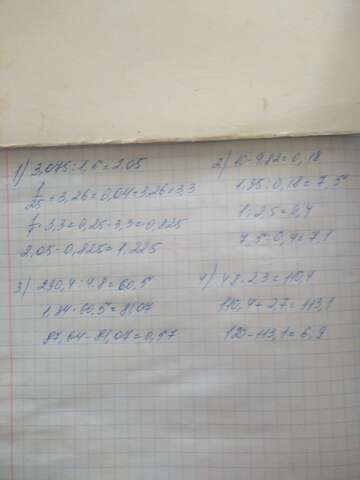 1) 3,075:1,5=2,05
1/25+3,26=0,04+3,26=3,3
1/4·3,3=0,25·3,3=0,825
2,05-0,825=1,225
2) 10-9,82=0,18
1,35:0,18=7,5
1:2,5=0,4
7,5-0,4=7,1
3) 290,4:4,8=60,5
1,34·60,5=81,07
87,64-81,07=6,57
4) 48·2,3=110,4
110,4+2,7=113,1
120-113,1=6,9